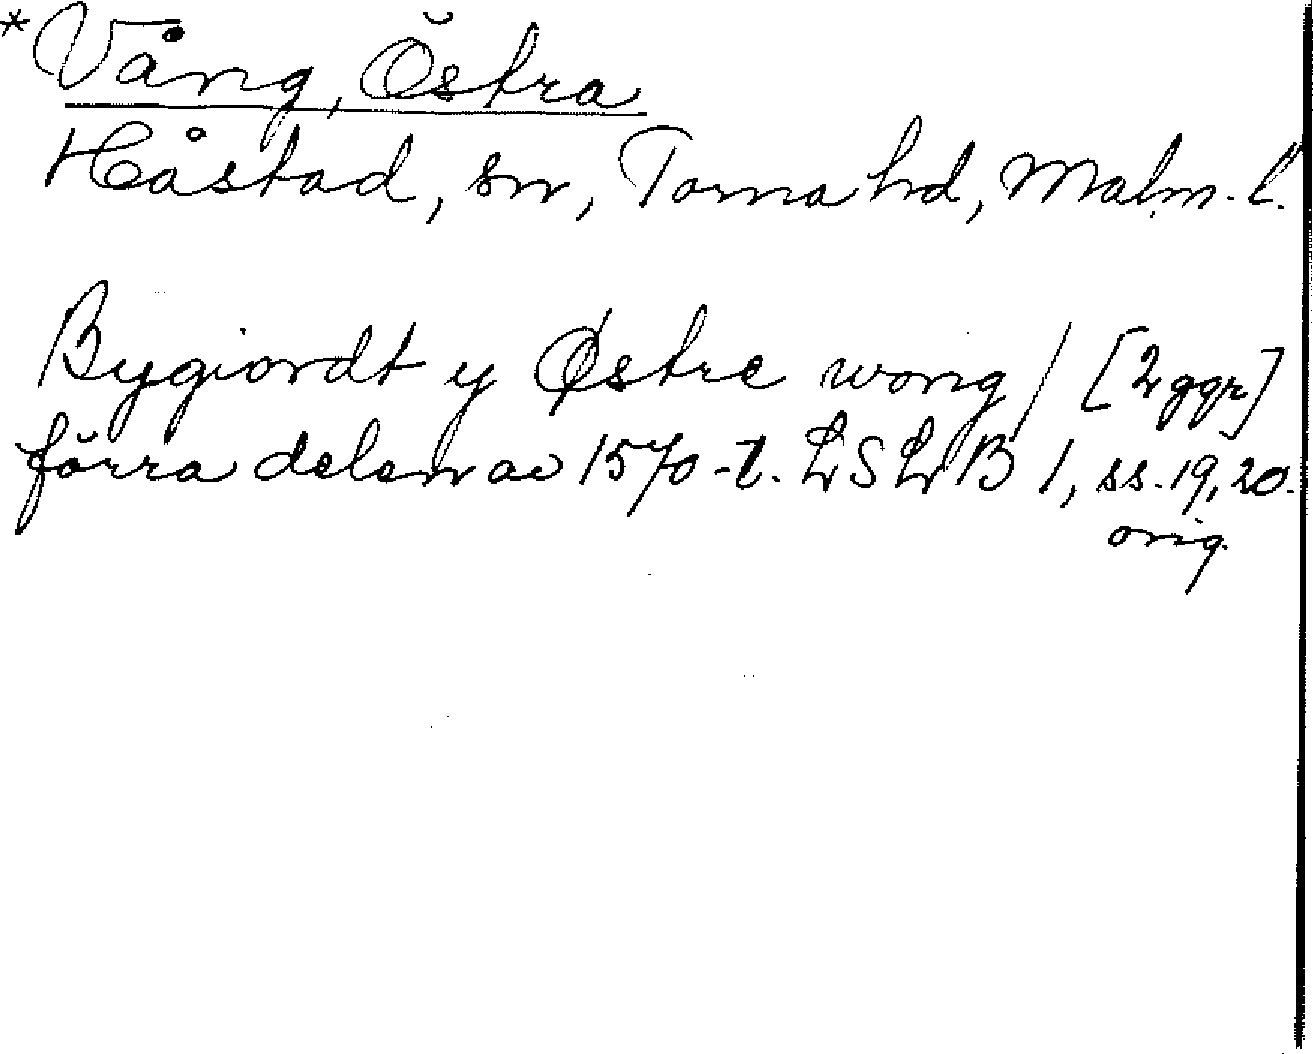 *Vång, Östra
Håstad, sn, Torna hd, Malm. l.
Bygiordt y Østre wong / [2 ggr]
förra delen av 1570-t. LSLB 1, ss. 19, 20.
orig.